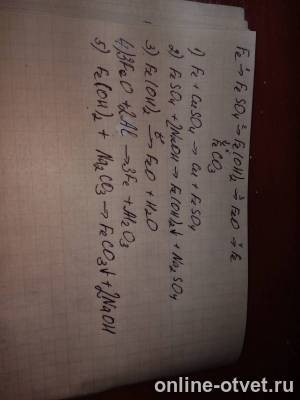 Fe →¹ FeSO₄ →² Fe(OH)₂ →³ FeO →⁴ Fe
FeCO₃
1) Fe + CuSO₄ → Cu + FeSO₄
2) FeSO₄ + 2NaOH → Fe(OH)₂↓ + Na₂SO₄
3) Fe(OH)₂ →
FeO + H₂O
4) 3FeO + 2Al → 3Fe + Al₂O₃
5) Fe(OH)₂ + Na₂CO₃ → FeCO₃↓ + 2NaOH
online-otvet.ru